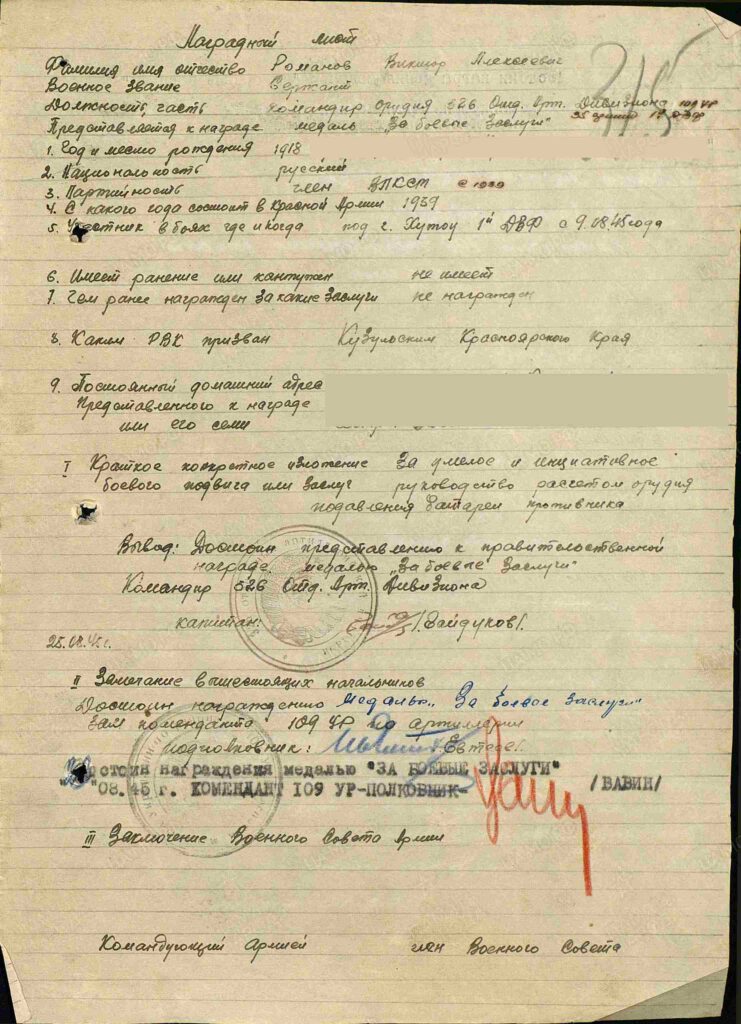 Наградный лист
Фамилия имя отчество Романов Виктор Алексеевич
Военное Звание Сержант
Должность, часть командир орудия 526 Отд. Арт. Дивизиона 109 УР
Представляется к награде медаль "За боевые Заслуги" 35 армии 1 ДВФ
1. Год и место рождения 1918
2. Национальность русский
3. Партийность член ВЛКСМ с 1939
4. С какого года состоит в Красной Армии 1939
5. Участник в боях где и когда под г. Хутоу 1й ДВФ с 9.08.45 года
6. Имеет ранение или контужен не имеет
7. Чем ранее награжден За какие Заслуги не награжден
8. Каким РВК призван Кузульским Красноярского Края
9. Постоянный домашний адрес
Представленного к награде
или его семи
I Краткое конкретное изложение За умелое и инициативное
боевого подвига или Заслуг руководство расчетом орудия
подавления батареи противника
Вывод: Достоин представлению к правительственной
награде медалью "За боевые Заслуги"
Командир 526 Отд. Арт. Дивизиона
капитан: /Гайдуков/.
25.08.45 г.
II Замечание вышестоящих начальников
Достоин награждению медалью "За боевое заслуги"
Зам коменданта 109 УР по артилерии
подполковник:
Достоин награждения медалью "ЗА БОЕВЫЕ ЗАСЛУГИ"
" "08.45 г. КОМЕНДАНТ 109 УР-ПОЛКОВНИК- /ВАВИН/
III Заключение Военного Совета Армии
Командующий Армией член Военного Совета